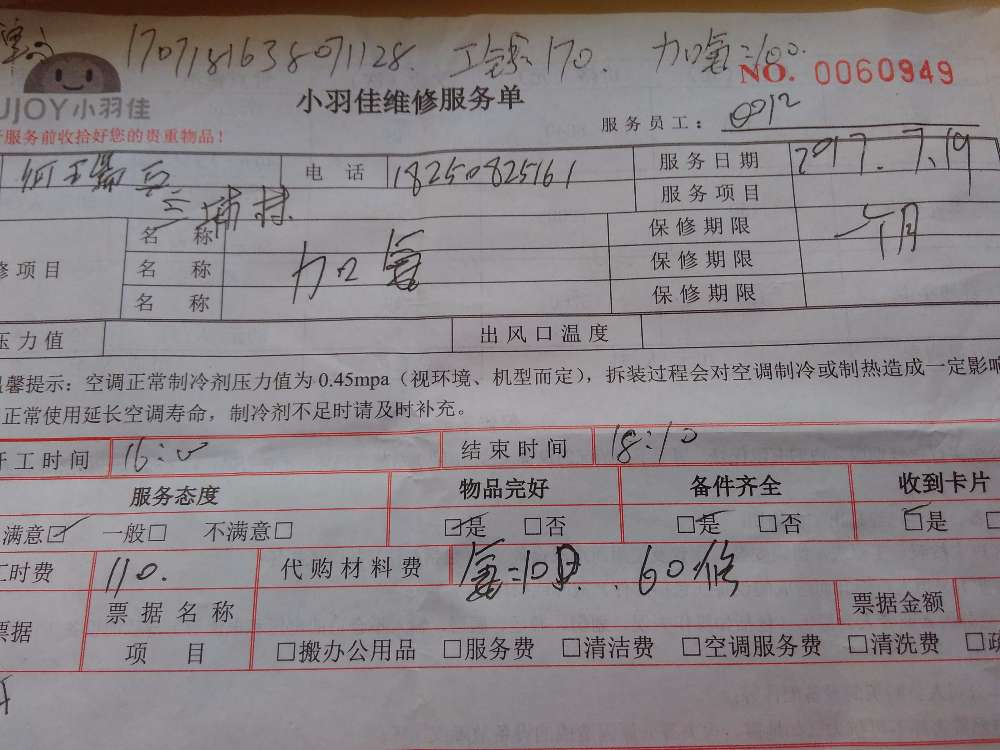 1707181638071128. 工氨 170. 加氨=100.
NO. 0060949
UJOY小羽佳
小羽佳维修服务单
服务前收拾好您的贵重物品！
服务员工： 0912
电话 18250825161 服务日期 2017.7.19
三埔村
服务项目
名称 保修期限 一个月
修项目 名称 加氨 保修期限
名称 保修期限
压力值 出风口温度
温馨提示：空调正常制冷剂压力值为0.45mpa（视环境、机型而定），拆装过程会对空调制冷或制热造成一定影响
正常使用延长空调寿命，制冷剂不足时请及时补充。
开工时间 16:00 结束时间 18:10
服务态度 物品完好 备件齐全 收到卡片
满意☑ 一般□ 不满意□ ☑是 □否 □是 □否 ☑是 □
工时费 110. 代购材料费 氨=100. 60修
票据 票据名称 票据金额
项目 □搬办公用品 □服务费 □清洁费 □空调服务费 □清洗费 □疏